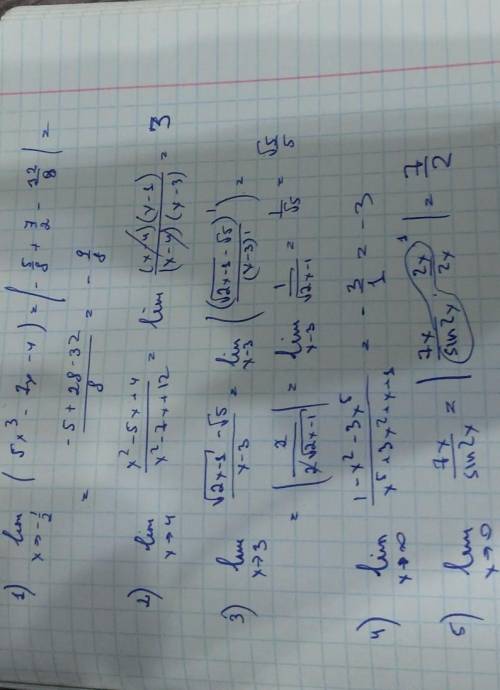 1) lim x→-1/2 (5x³ - 7x - 4) = | -5/8 + 7/2 - 32/8 | =
= (-5 + 28 - 32)/8 = -9/8
2) lim x→4 (x² - 5x + 4)/(x² - 7x + 12) = lim ((x-4)(x-1))/((x-4)(x-3)) = 3
3) lim x→3 (√(2x-1) - √5)/(x-3) = lim x→3 ((√(2x-1) - √5)'/(x-3)') =
= | 2/(2√(2x-1)) | = lim x→3 1/√(2x-1) = 1/√5 = √5/5
4) lim x→∞ (1 - x² - 3x⁵)/(x⁵ + 3x² + x + 1) = -3/1 = -3
5) lim x→0 7x/sin2x = | 7x/sin2x · 2x/2x | = 7/2
1